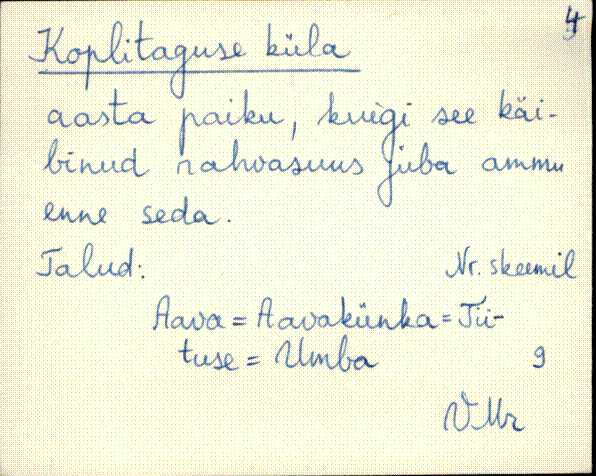 4
Koplitaguse küla
aasta paiku, kuigi see käi-
binud rahvasuus juba ammu
enne seda.
Talud: Nr. skeemil
Aava = Aavakünka = Tii-
tuse = Umba 9
VMr